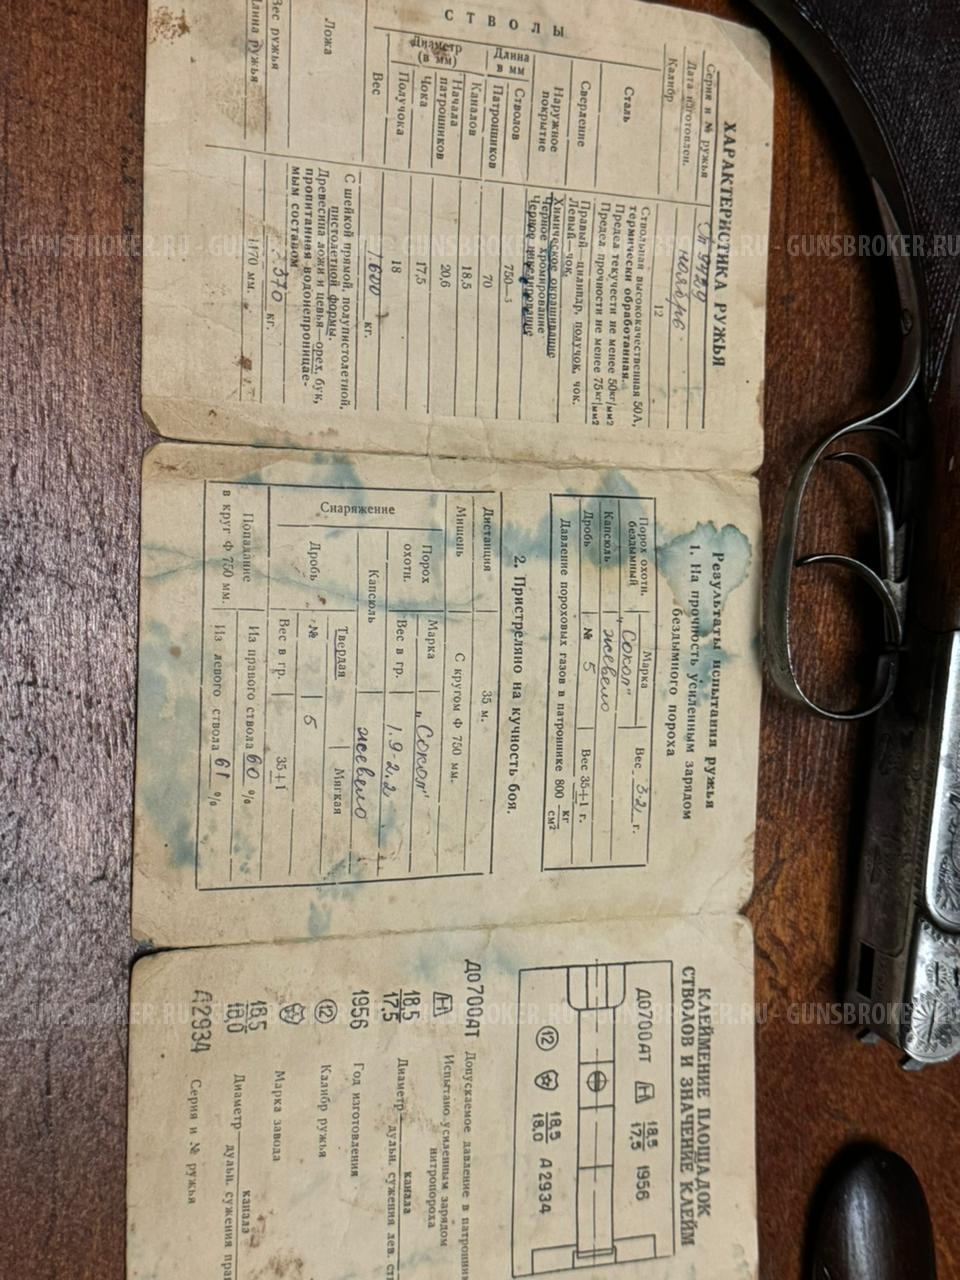 ХАРАКТЕРИСТИКА РУЖЬЯ
Серия и № ружья
Дата изготовлен. ноябрь
Калибр 12
СТВОЛЫ
Сталь Ствольная высококачественная 50А,
термически обработанная.
Предел текучести не менее 50кг/мм²
Предел прочности не менее 75кг/мм²
Сверление Правый—цилиндр, получок, чок.
Левый—чок.
Наружное покрытие Химическое окрашивание
Черное хромирование
Черное никелирование
Длина в мм Стволов 750—5
Патронников 70
Диаметр (в мм) Каналов 18,5
Начала патронников 20,6
Чока 17,5
Получока 18
Вес 1.600 кг.
Ложа С шейкой прямой, полупистолетной,
пистолетной формы.
Древесина ложи и цевья—орех, бук,
пропитанная водонепроницае-
мым составом
Вес ружья 3.370 кг.
Длина ружья 1170 мм.
Результаты испытания ружья
1. На прочность усиленным зарядом
бездымного пороха
Порох охотн. бездымный Марка „Сокол" Вес 3.2 г.
Капсюль жевело
Дробь № 5 Вес 35±1 г.
Давление пороховых газов в патроннике 800 кг/см²
2. Пристреляно на кучность боя.
Дистанция 35 м.
Мишень С кругом Ф 750 мм.
Снаряжение
Порох охотн. Марка „Сокол"
Вес в гр. 1.9-2.2
Капсюль жевело
Дробь Твердая Мягкая
№ 5
Вес в гр. 35±1
Попадание в круг Ф 750 мм. Из правого ствола 60 %
Из левого ствола 61 %
КЛЕЙМЕНИЕ ПЛОЩАДОК
СТВОЛОВ И ЗНАЧЕНИЕ КЛЕЙМ
ДО700АТ Н 18,5/17,5 1956
12 18,5/18,0 А2934
ДО700АТ Допускаемое давление в патронник
Н Испытано усиленным зарядом
нитропороха
18,5/17,5 Диаметр канала/дульн. сужения лев. ст
1956 Год изготовления
12 Калибр ружья
Марка завода
18,5/18,0 Диаметр канала/дульн. сужения пра
А2934 Серия и № ружья
GUNSBROKER.RU